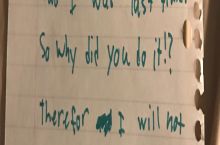 I was last
So why did you do it!?
therefor I will not